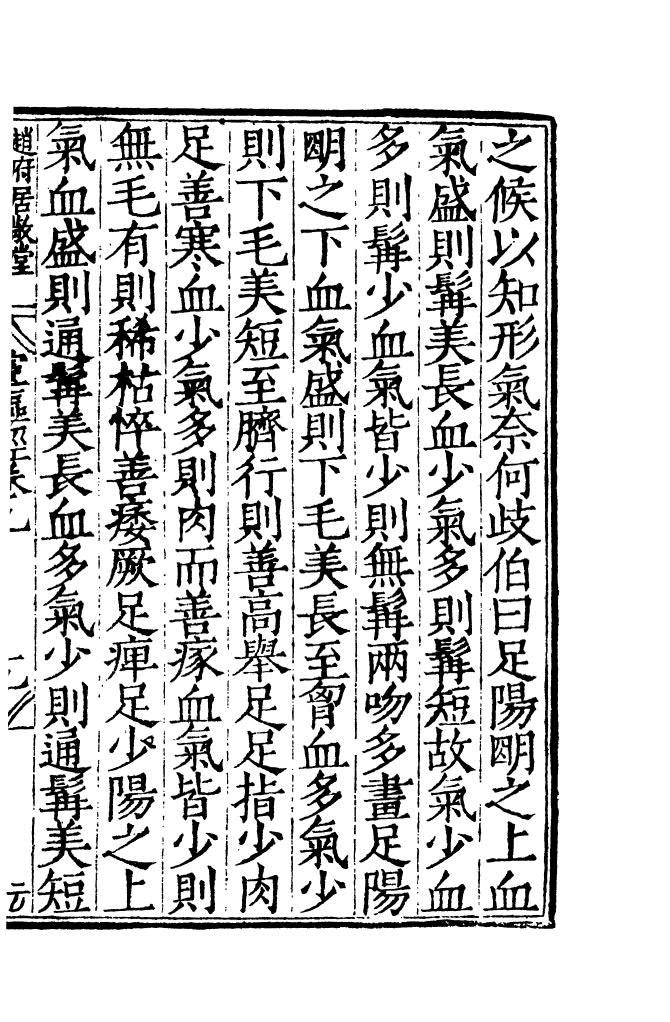 之候以知形氣奈何歧伯曰足陽明之上血
氣盛則髯美長血少氣多則髯短故氣少血
多則髯少血氣皆少則無髯兩吻多畫足陽
明之下血氣盛則下毛美長至胷血多氣少
則下毛美短至臍行則善高舉足足指少肉
足善寒血少氣多則肉而善瘃血氣皆少則
無毛有則稀枯悴善痿厥足痺足少陽之上
氣血盛則通髯美長血多氣少則通髯美短
趙府居敬堂